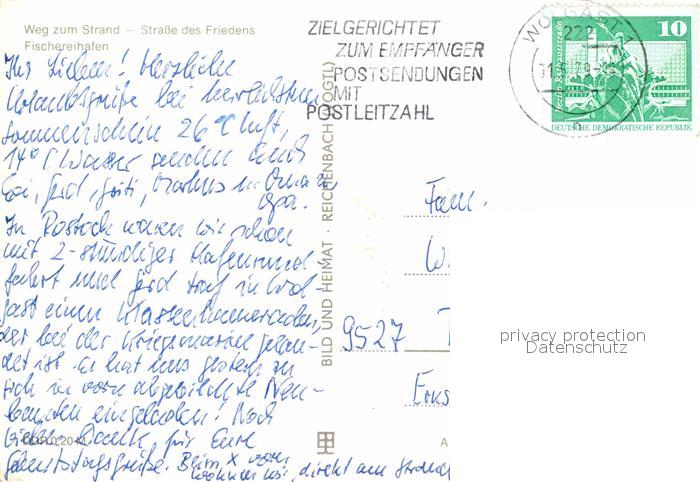 Weg zum Strand – Straße des Friedens
Fischereihafen
ZIELGERICHTET
ZUM EMPFÄNGER
POSTSENDUNGEN
MIT
POSTLEITZAHL
WOLGAST 1
222
10
DEUTSCHE DEMOKRATISCHE REPUBLIK
Ihr Lieben! Herzliche
Urlaubsgrüße bei herrlichstem
Sonnenschein 26°C Luft,
14°C Wasser senden Euch
Gerd, Markus u. Oma u.
Opa.
In Rostock waren wir schon
mit 2-stündiger Hafenrund-
fahrt und Gerd traf in Wol-
gast einen Klassenkameraden,
der bei der Kriegsmarine gelan-
det ist. Er hat uns gestern zu
sich in vorn abgebildete Neu-
bauten eingeladen! Noch
vielen Dank für Eure
Geburtstagsgrüße. Beim X vorn
wohnen wir direkt am Strand
BILD UND HEIMAT · REICHENBACH (VOGTL)
Fam.
W
9527
privacy protection
Datenschutz
A